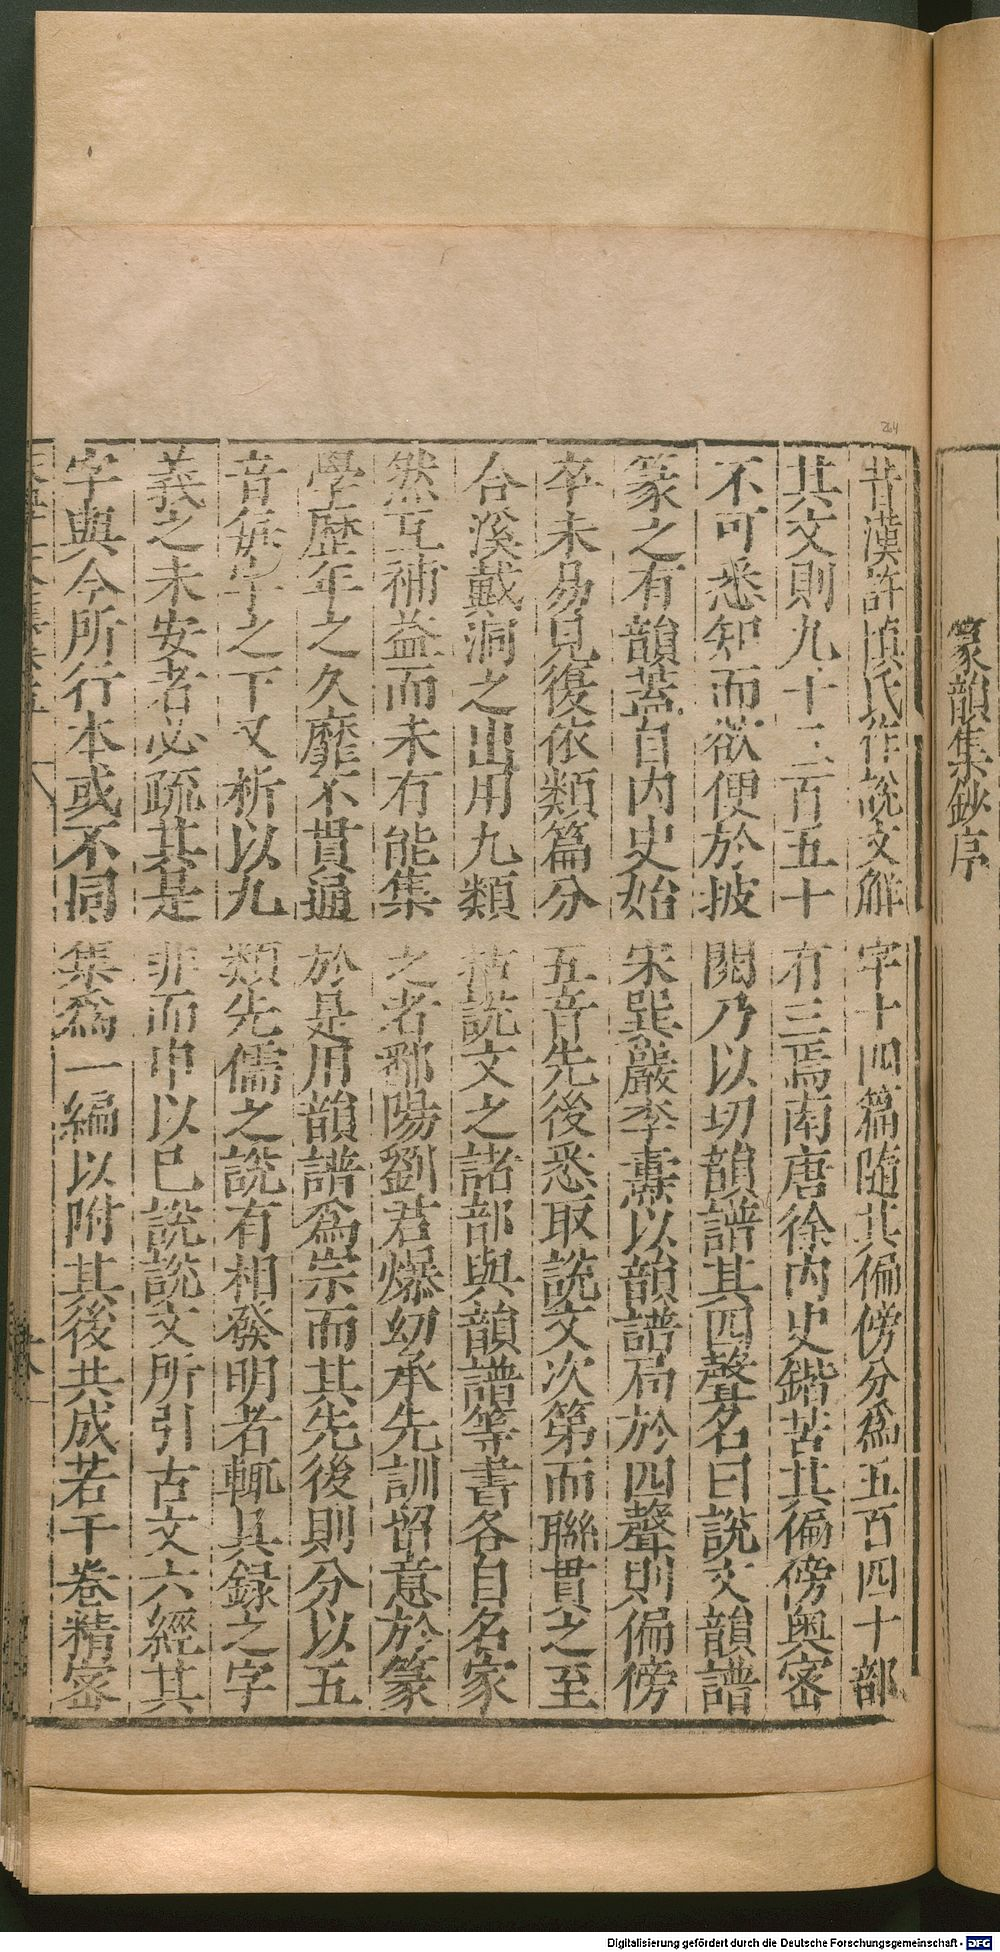 篆韻集鈔序
昔漢許慎氏作說文解字十四篇隨其偏傍分爲五百四十部
其文則九千三百五十有三焉南唐徐內史鍇苦其偏傍奧宻
不可悉知而欲便於披閱乃以切韻譜其四聲名曰說文韻譜
篆之有韻葢自內史始宋巽巖李燾以韻譜局於四聲則偏傍
卒未易見復依類篇分五音先後悉取說文次第而聯貫之至
合溪戴洞之出用九類括說文之諸部與韻譜等書各自名家
然互補益而未有能集之者鄱陽劉君爆幼承先訓留意於篆
學歷年之久靡不貫通於是用韻譜爲宗而其先後則分以五
音每字之下又析以九類先儒之說有相發明者輒具録之字
義之未安者必疏其是非而申以已說說文所引古文六經其
字與今所行本或不同集爲一編以附其後共成若干卷精宻
264
Digitalisierung gefördert durch die Deutsche Forschungsgemeinschaft - DFG